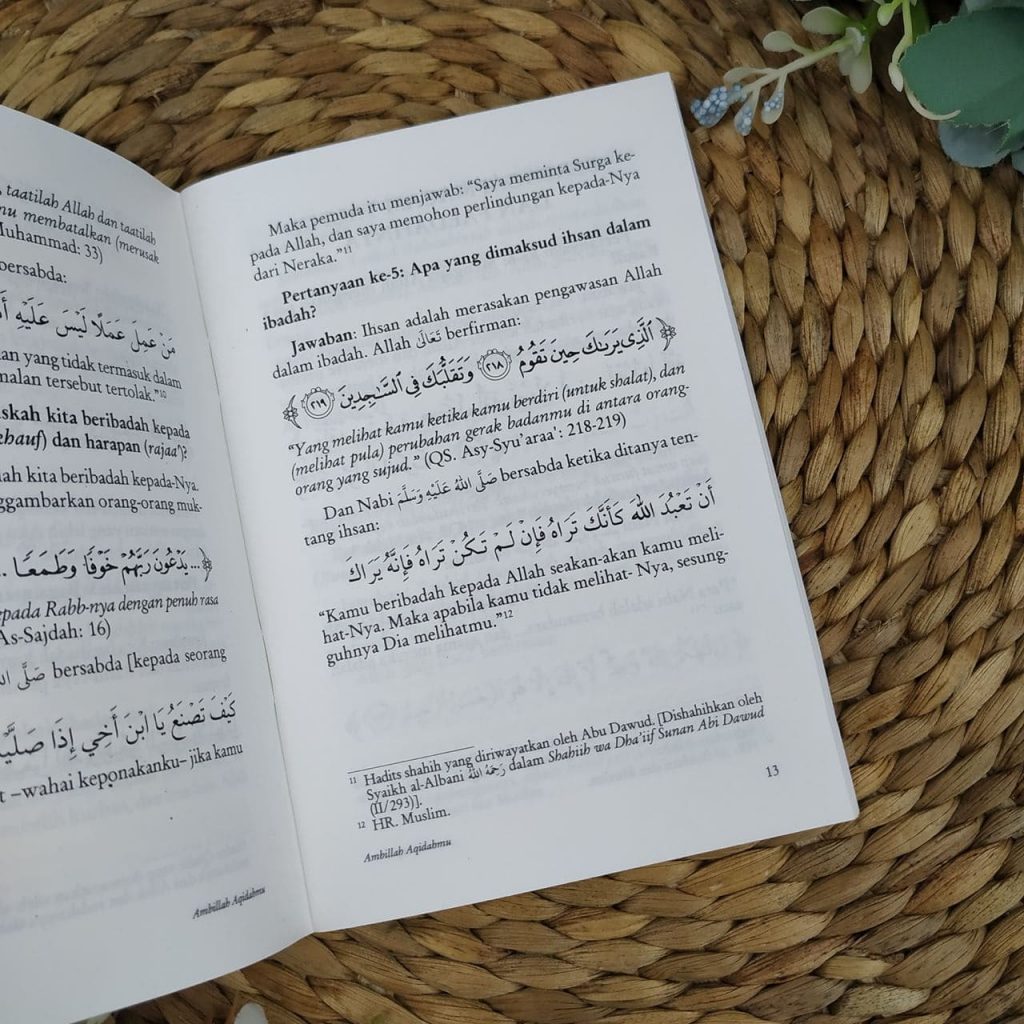 , taatilah Allah dan taatilah
nu membatalkan (merusak
Muhammad: 33)
bersabda:
مَنْ عَمِلَ عَمَلًا لَيْسَ عَلَيْهِ
an yang tidak termasuk dalam
malan tersebut tertolak."10
skah kita beribadah kepada
(khauf) dan harapan (rajaa')?
ah kita beribadah kepada-Nya.
ggambarkan orang-orang muk-
﴿... يَدْعُونَ رَبَّهُمْ خَوْفًا وَطَمَعًا ...
epada Rabb-nya dengan penuh rasa
As-Sajdah: 16)
صَلَّى bersabda [kepada seorang
كَيْفَ تَصْنَعُ يَا ابْنَ أَخِي إِذَا صَلَّيْ
t –wahai keponakanku– jika kamu
Ambillah Aqidahmu
Maka pemuda itu menjawab: "Saya meminta Surga ke-
pada Allah, dan saya memohon perlindungan kepada-Nya
dari Neraka."11
Pertanyaan ke-5: Apa yang dimaksud ihsan dalam
ibadah?
Jawaban: Ihsan adalah merasakan pengawasan Allah
dalam ibadah. Allah تَعَالَى berfirman:
﴿ ٱلَّذِى يَرَىٰكَ حِينَ تَقُومُ ٢١٨ وَتَقَلُّبَكَ فِى ٱلسَّـٰجِدِينَ ٢١٩ ﴾
"Yang melihat kamu ketika kamu berdiri (untuk shalat), dan
(melihat pula) perubahan gerak badanmu di antara orang-
orang yang sujud." (QS. Asy-Syu'araa': 218-219)
Dan Nabi صَلَّى اللهُ عَلَيْهِ وَسَلَّمَ bersabda ketika ditanya ten-
tang ihsan:
أَنْ تَعْبُدَ اللهَ كَأَنَّكَ تَرَاهُ فَإِنْ لَمْ تَكُنْ تَرَاهُ فَإِنَّهُ يَرَاكَ
"Kamu beribadah kepada Allah seakan-akan kamu meli-
hat-Nya. Maka apabila kamu tidak melihat- Nya, sesung-
guhnya Dia melihatmu."12
11 Hadits shahih yang diriwayatkan oleh Abu Dawud. [Dishahihkan oleh
Syaikh al-Albani رَحِمَهُ اللهُ dalam Shahiih wa Dha'iif Sunan Abi Dawud
(II/293)].
12 HR. Muslim.
13
Ambillah Aqidahmu